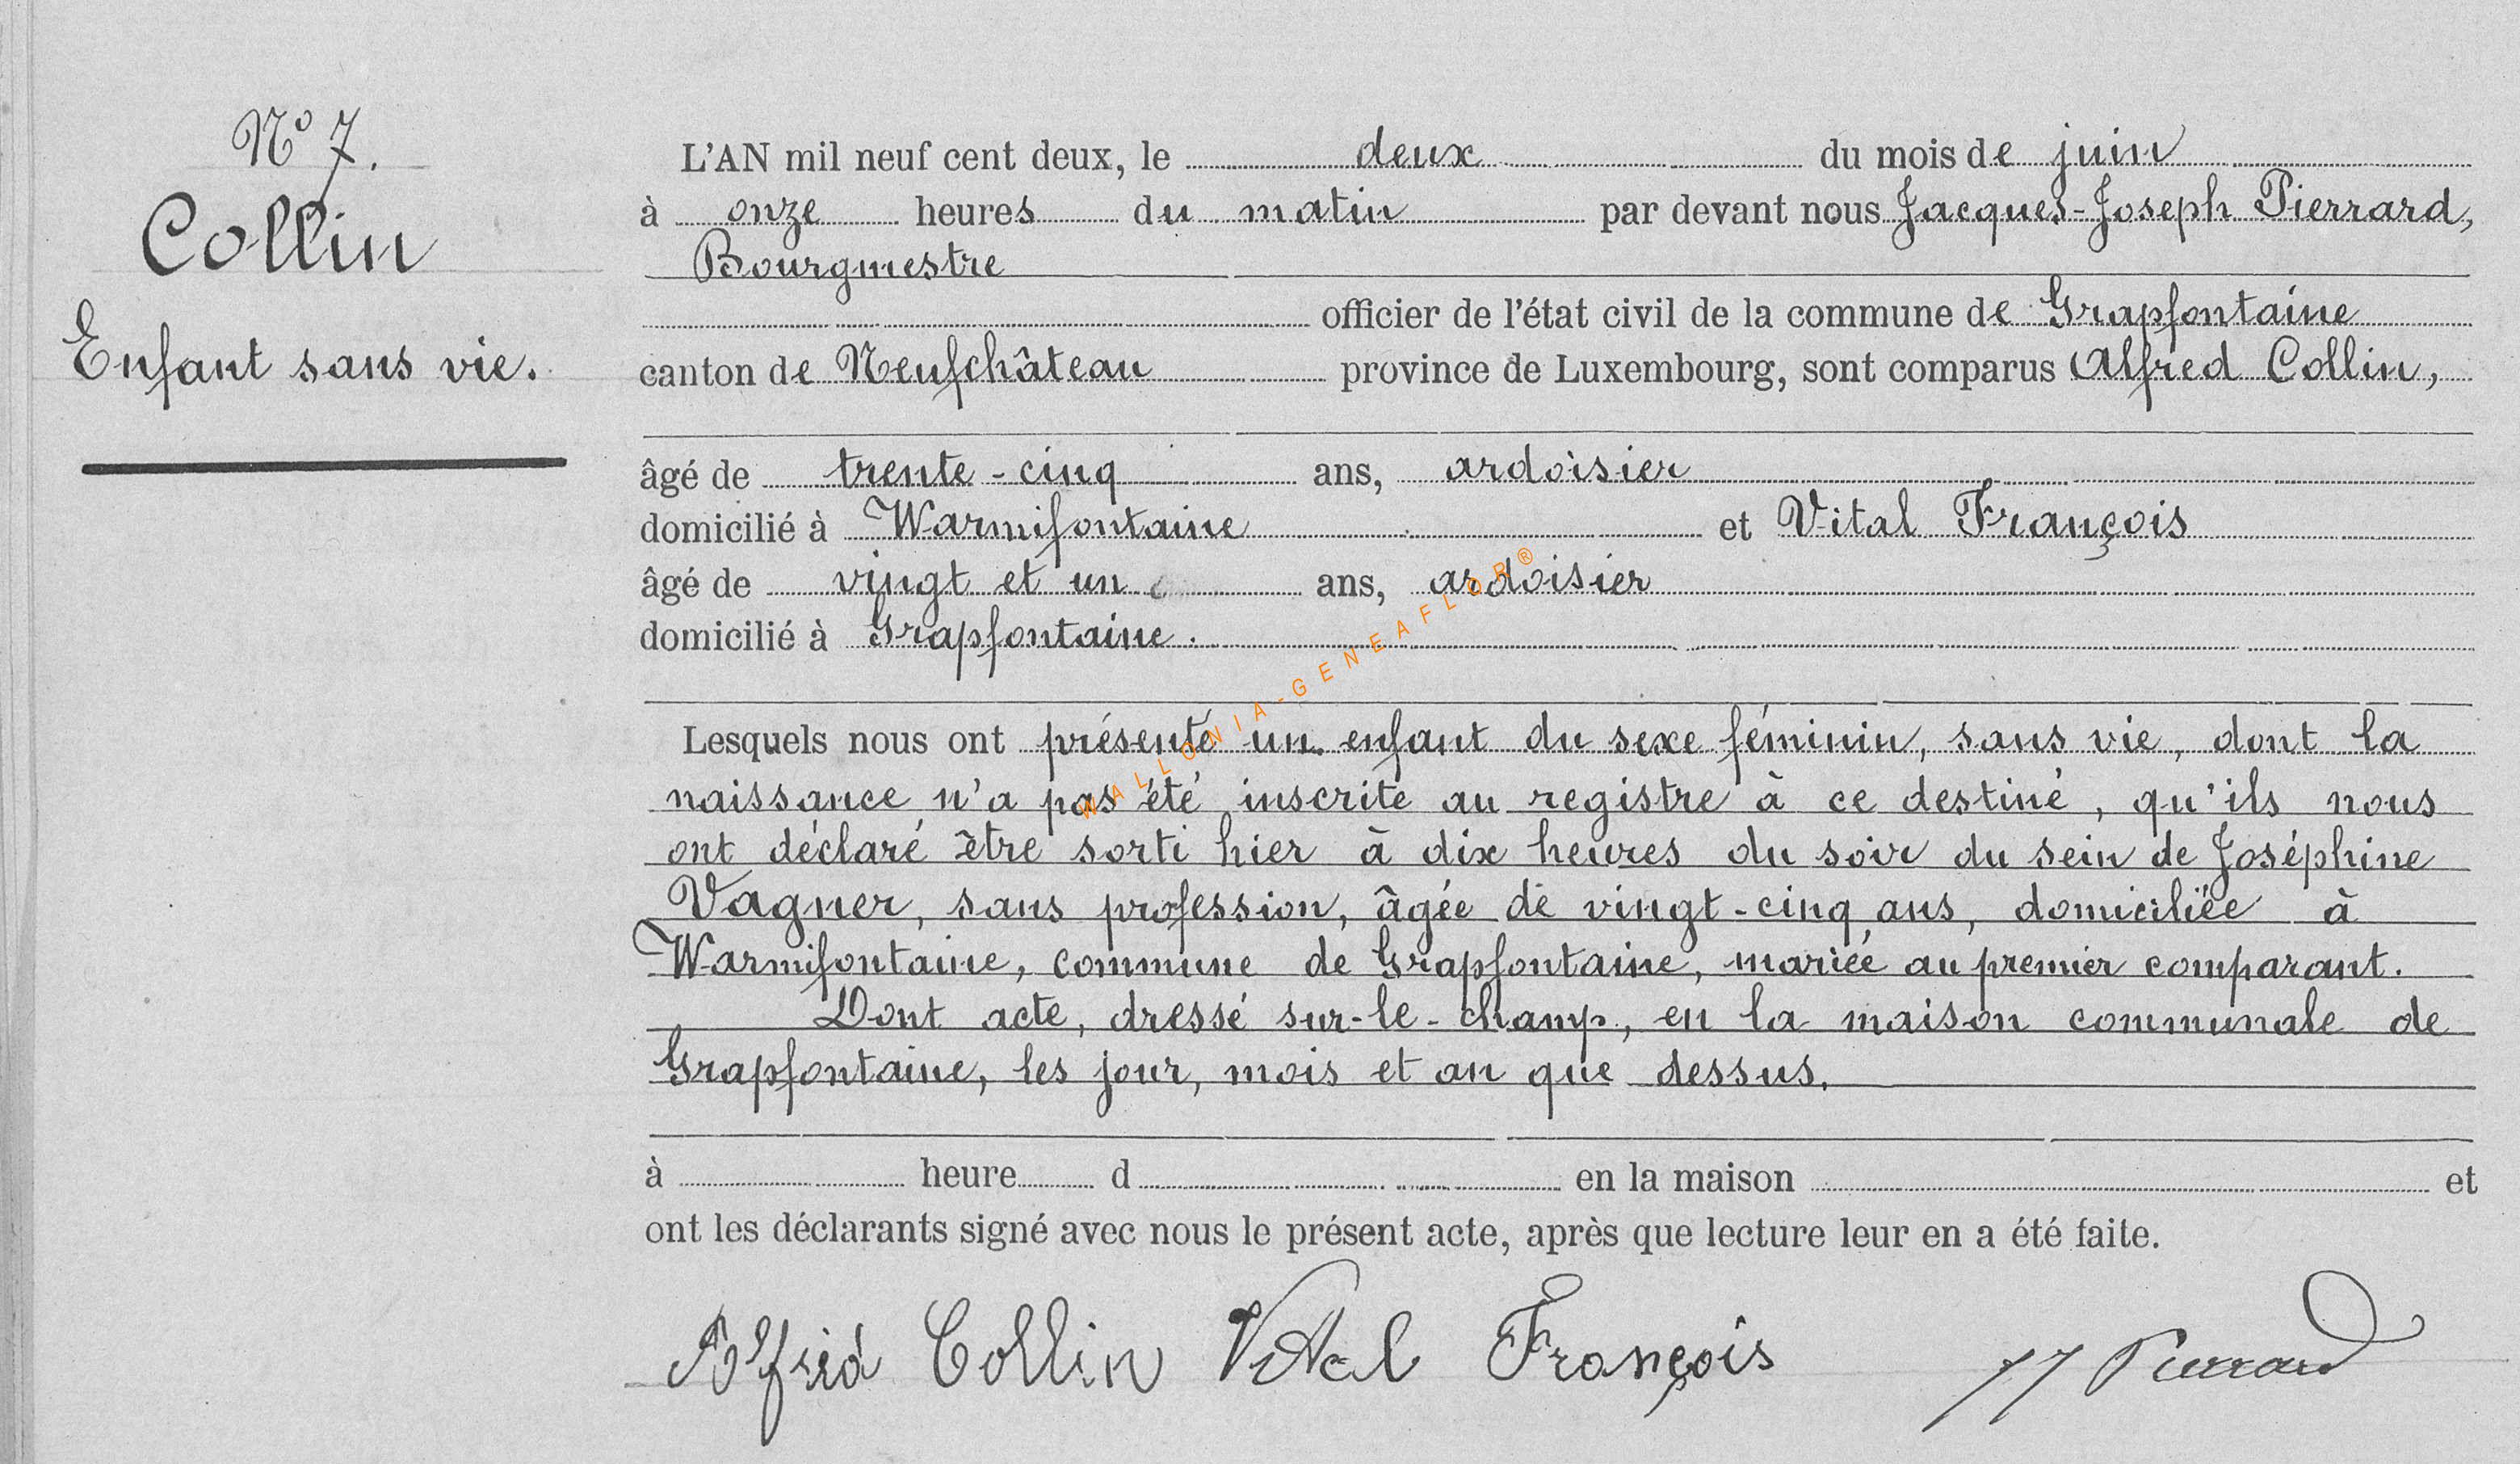 Nº 7.
Collin
Enfant sans vie.
L'AN mil neuf cent deux, le deux du mois de juin
à onze heures du matin par devant nous Jacques-Joseph Pierrard,
Bourgmestre
officier de l'état civil de la commune de Grapfontaine
canton de Neufchâteau province de Luxembourg, sont comparus Alfred Collin,
âgé de trente-cinq ans, ardoisier
domicilié à Warmifontaine et Vital François
âgé de vingt et un ans, ardoisier
domicilié à Grapfontaine.
Lesquels nous ont présenté un enfant du sexe féminin, sans vie, dont la
naissance n'a pas été inscrite au registre à ce destiné, qu'ils nous
ont déclaré être sorti hier à dix heures du soir du sein de Joséphine
Vagner, sans profession, âgée de vingt-cinq ans, domiciliée à
Warmifontaine, commune de Grapfontaine, mariée au premier comparant.
Dont acte, dressé sur-le-champ, en la maison communale de
Grapfontaine, les jour, mois et an que dessus.
à heure d en la maison et
ont les déclarants signé avec nous le présent acte, après que lecture leur en a été faite.
Alfred Collin Vital François JJ Pierrard
WALLONIA-GENEAFLOR®